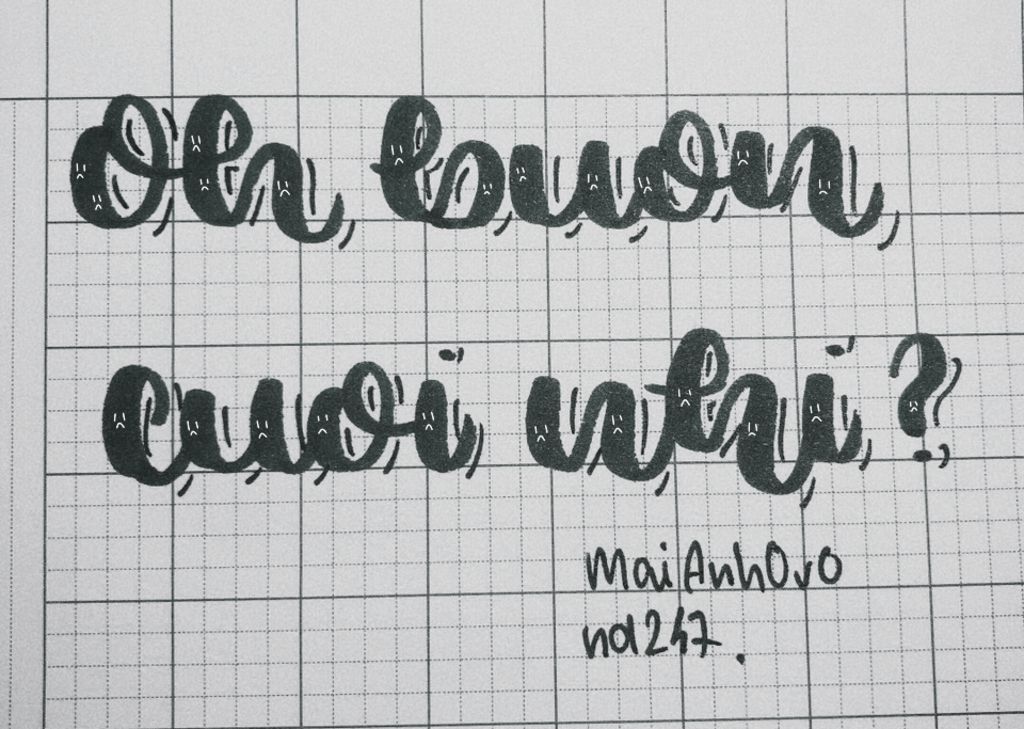 Oh buon
cuoi nhi?
MaiAnhOvO
nd247.